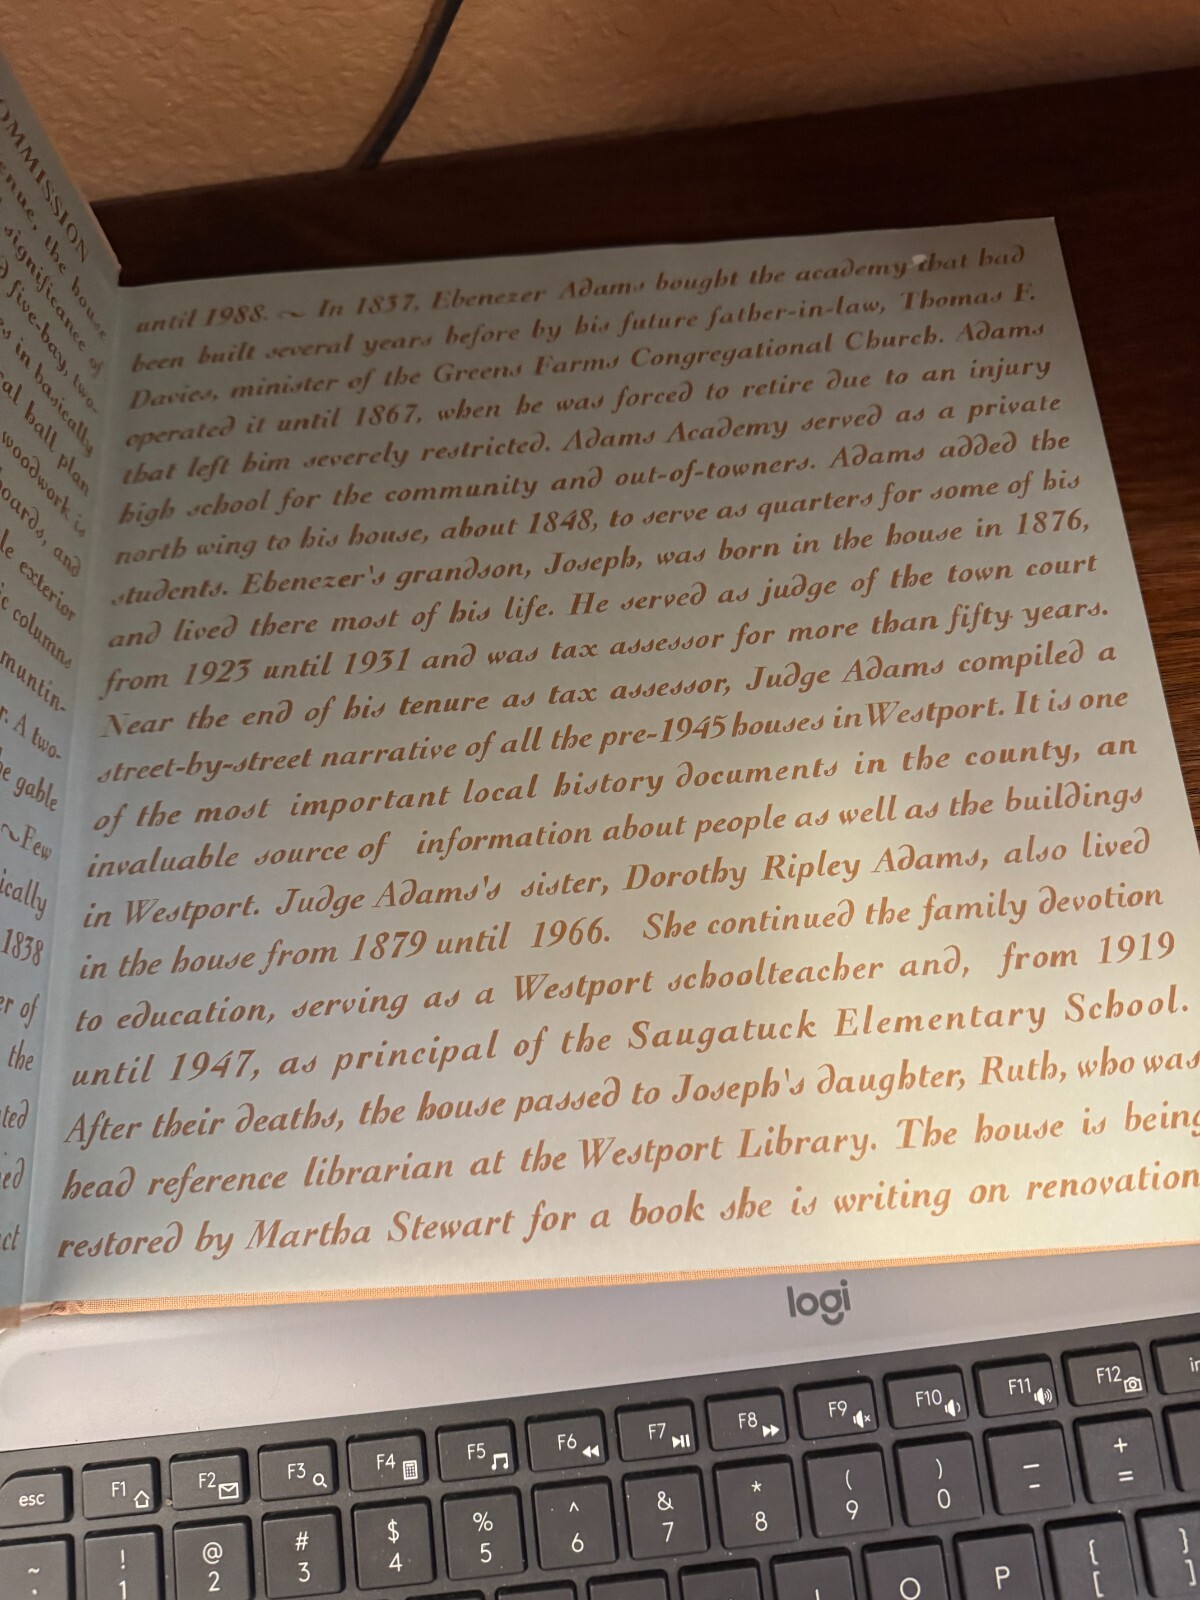 OMMISSION
enue, the house
significance of
d five-bay, two-
es in basically
al hall plan
woodwork is
oards, and
le exterior
ic columns
muntin-
r. A two-
be gable
~Few
ically
1838
er of
the
ted
ed
ct
until 1988. ~ In 1837, Ebenezer Adams bought the academy that had
been built several years before by his future father-in-law, Thomas F.
Davies, minister of the Greens Farms Congregational Church. Adams
operated it until 1867, when he was forced to retire due to an injury
that left him severely restricted. Adams Academy served as a private
high school for the community and out-of-towners. Adams added the
north wing to his house, about 1848, to serve as quarters for some of his
students. Ebenezer's grandson, Joseph, was born in the house in 1876,
and lived there most of his life. He served as judge of the town court
from 1923 until 1931 and was tax assessor for more than fifty years.
Near the end of his tenure as tax assessor, Judge Adams compiled a
street-by-street narrative of all the pre-1945 houses in Westport. It is one
of the most important local history documents in the county, an
invaluable source of information about people as well as the buildings
in Westport. Judge Adams's sister, Dorothy Ripley Adams, also lived
in the house from 1879 until 1966. She continued the family devotion
to education, serving as a Westport schoolteacher and, from 1919
until 1947, as principal of the Saugatuck Elementary School.
After their deaths, the house passed to Joseph's daughter, Ruth, who was
head reference librarian at the Westport Library. The house is being
restored by Martha Stewart for a book she is writing on renovation
logi
esc F1 F2 F3 F4 F5 F6 F7 F8 F9 F10 F11 F12 in
~ ! @ # $ % ^ & * ( ) _ +
1 2 3 4 5 6 7 8 9 0 - =
O P { [ } ]